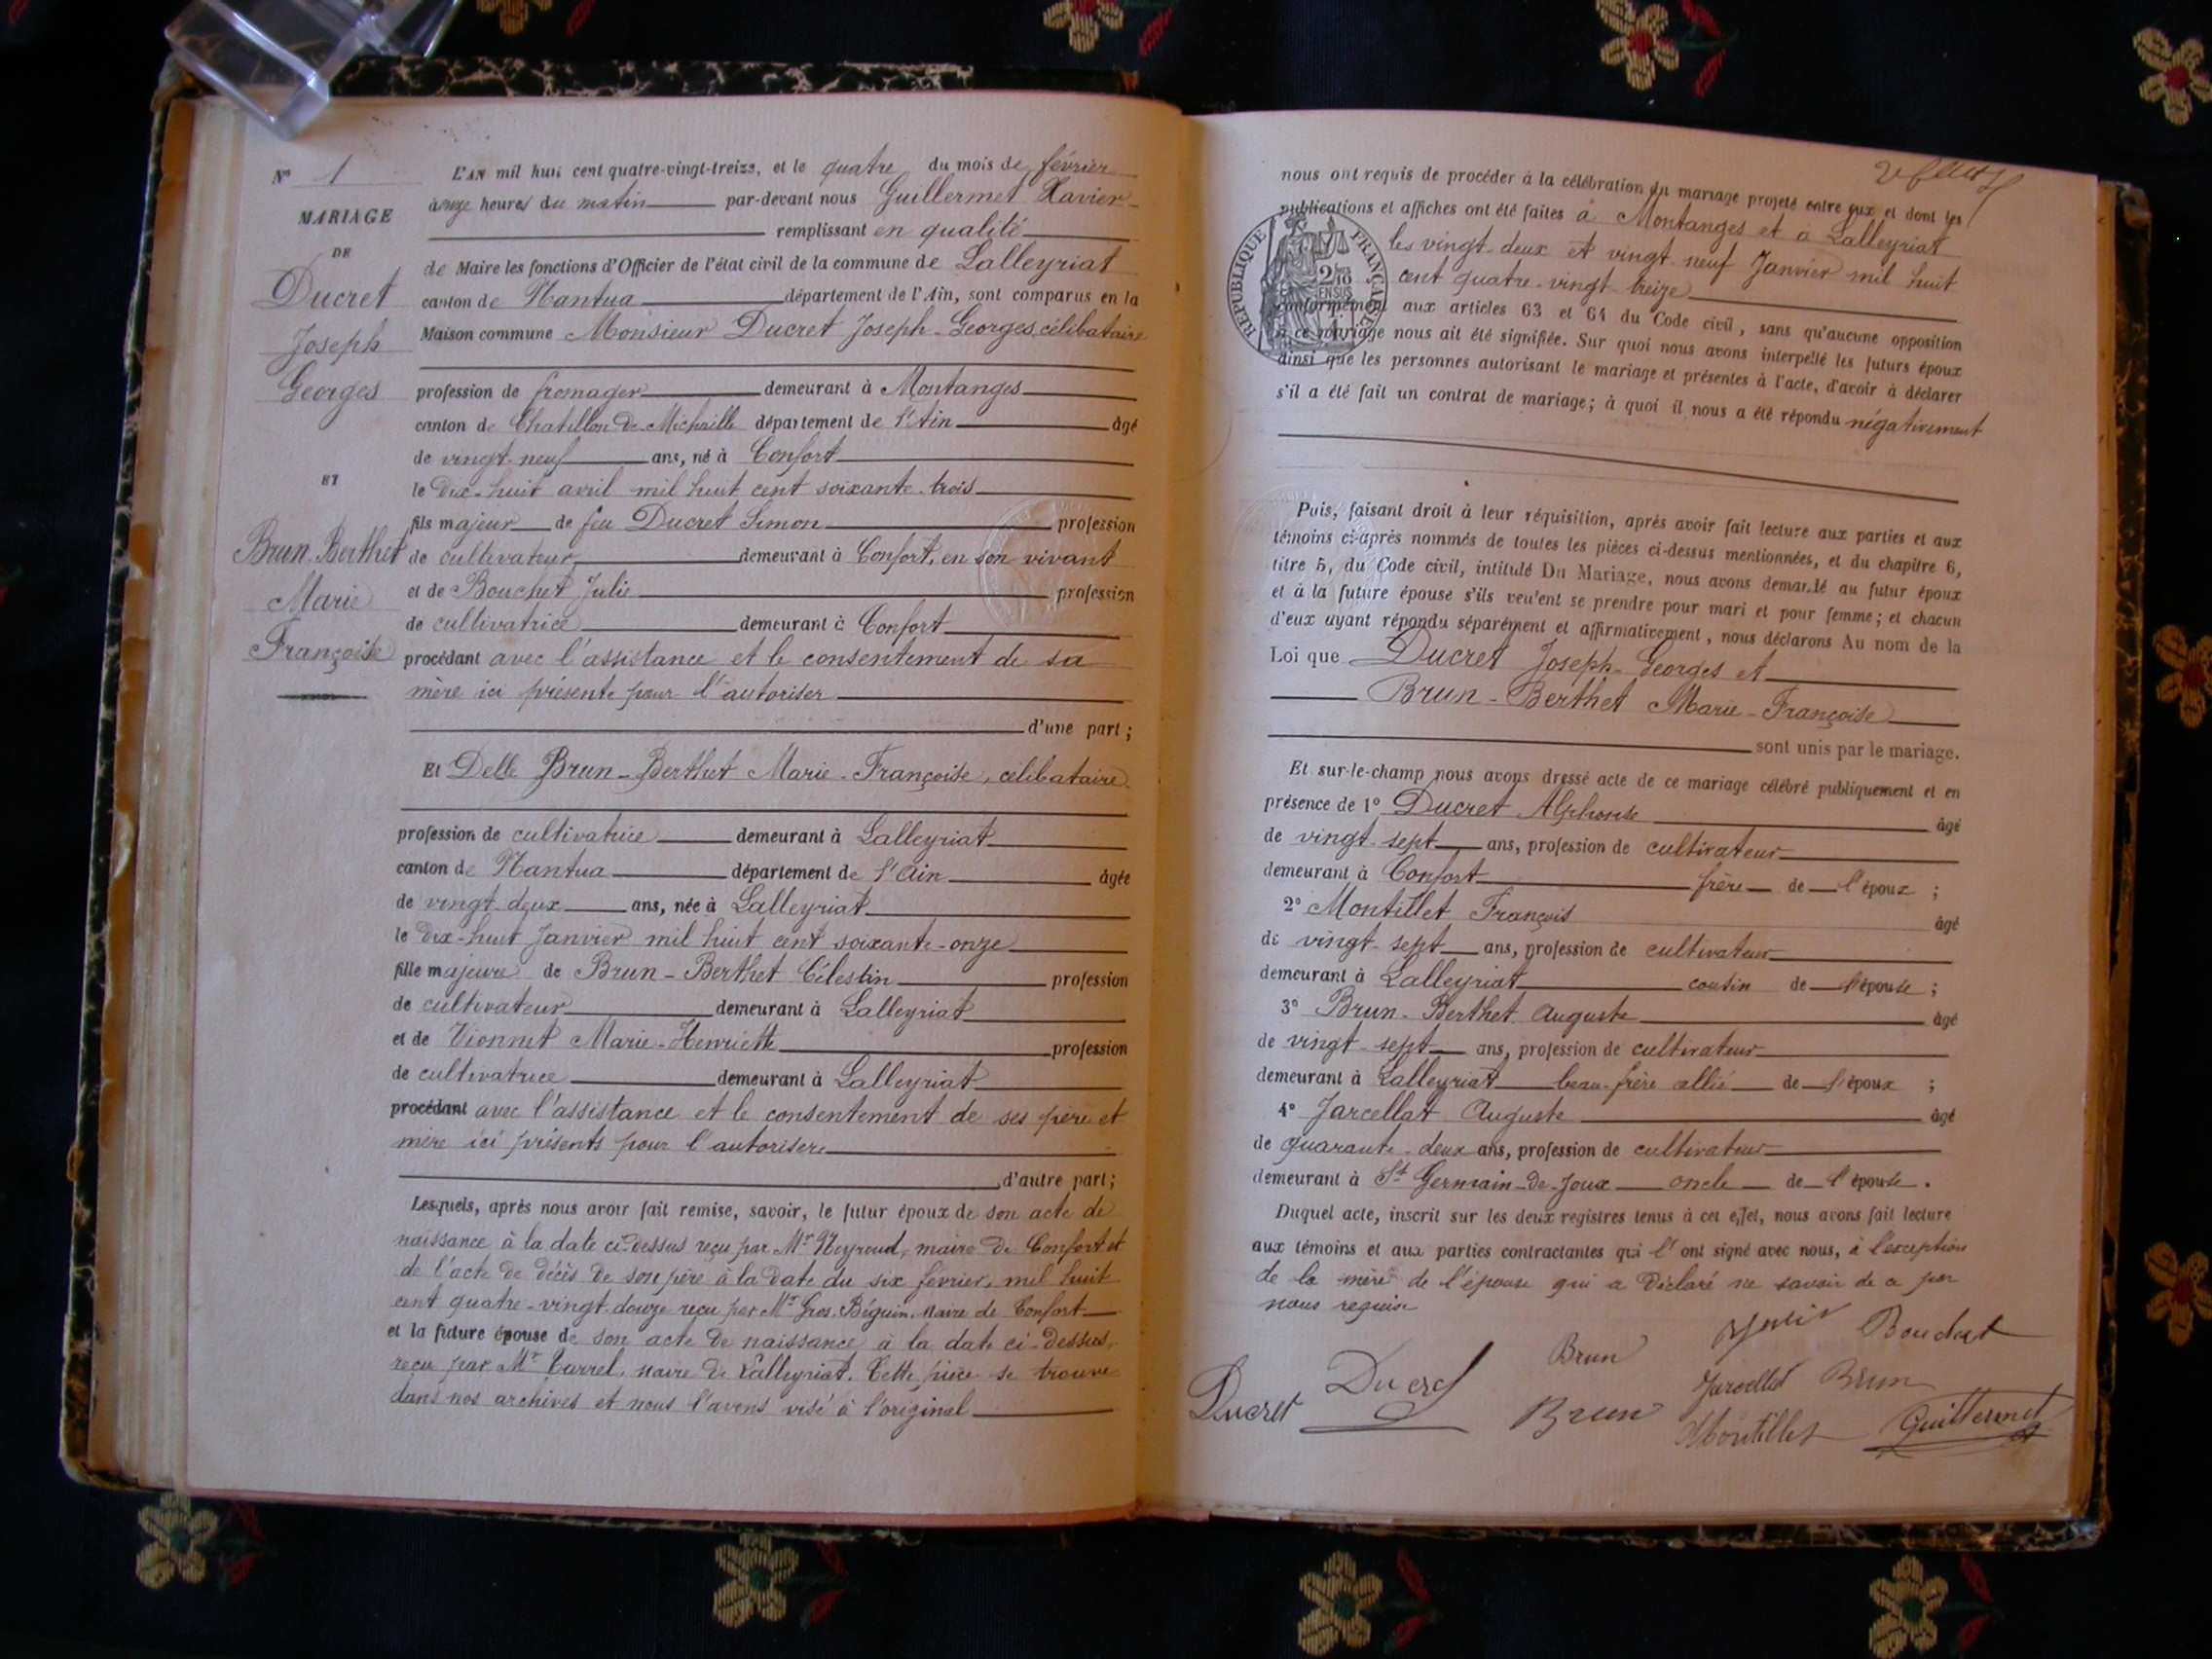 N° 1
MARIAGE
DE
Ducret
Joseph
Georges
ET
Brun-Berthet
Marie
Françoise
L'AN mil huit cent quatre-vingt-treize, et le quatre du mois de février
à onze heures du matin par-devant nous Guillermet Xavier
remplissant en qualité
de Maire les fonctions d'Officier de l'état civil de la commune de Lalleyriat
canton de Nantua département de l'Ain, sont comparus en la
Maison commune Monsieur Ducret Joseph-Georges, célibataire
profession de fromager demeurant à Montanges
canton de Chatillon-de-Michaille département de l'Ain âgé
de vingt-neuf ans, né à Confort
le dix-huit avril mil huit cent soixante-trois
fils majeur de feu Ducret Simon profession
de cultivateur demeurant à Confort, en son vivant
et de Bouchet Julie profession
de cultivatrice demeurant à Confort
procédant avec l'assistance et le consentement de sa
mère ici présente pour l'autoriser
d'une part;
Et Delle Brun-Berthet Marie-Françoise, célibataire
profession de cultivatrice demeurant à Lalleyriat
canton de Nantua département de l'Ain âgée
de vingt-deux ans, née à Lalleyriat
le dix-huit Janvier mil huit cent soixante-onze
fille majeure de Brun-Berthet Célestin profession
de cultivateur demeurant à Lalleyriat
et de Vionnet Marie-Henriette profession
de cultivatrice demeurant à Lalleyriat
procédant avec l'assistance et le consentement de ses père et
mère ici présents pour l'autoriser
d'autre part;
Lesquels, après nous avoir fait remise, savoir, le futur époux de son acte de
naissance à la date ci-dessus reçu par Mr Neyroud, maire de Confort et
de l'acte de décès de son père à la date du six février, mil huit
cent quatre-vingt-douze reçu par Mr Gros-Béguin, maire de Confort
et la future épouse de son acte de naissance à la date ci-dessus,
reçu par Mr Burrel, maire de Lalleyriat. Cette pièce se trouve
dans nos archives et nous l'avons visé à l'original
nous ont requis de procéder à la célébration du mariage projeté entre eux et dont les
publications et affiches ont été faites à Montanges et à Lalleyriat
les vingt-deux et vingt-neuf Janvier mil huit
cent quatre-vingt-treize
conformément aux articles 63 et 64 du Code civil, sans qu'aucune opposition
à ce mariage nous ait été signifiée. Sur quoi nous avons interpellé les futurs époux
ainsi que les personnes autorisant le mariage et présentes à l'acte, d'avoir à déclarer
s'il a été fait un contrat de mariage; à quoi il nous a été répondu négativement
REPUBLIQUE FRANÇAISE
2/10
EN SUS
Puis, faisant droit à leur réquisition, après avoir fait lecture aux parties et aux
témoins ci-après nommés de toutes les pièces ci-dessus mentionnées, et du chapitre 6,
titre 5, du Code civil, intitulé Du Mariage, nous avons demandé au futur époux
et à la future épouse s'ils veulent se prendre pour mari et pour femme; et chacun
d'eux ayant répondu séparément et affirmativement, nous déclarons Au nom de la
Loi que Ducret Joseph-Georges et
Brun-Berthet Marie-Françoise
sont unis par le mariage.
Et sur-le-champ nous avons dressé acte de ce mariage célébré publiquement et en
présence de 1° Ducret Alphonse âgé
de vingt-sept ans, profession de cultivateur
demeurant à Confort frère de l'époux;
2° Montillet François âgé
de vingt-sept ans, profession de cultivateur
demeurant à Lalleyriat cousin de l'épouse;
3° Brun-Berthet Auguste âgé
de vingt-sept ans, profession de cultivateur
demeurant à Lalleyriat beau-frère allié de l'époux;
4° Jarcellat Auguste âgé
de quarante-deux ans, profession de cultivateur
demeurant à St Germain-de-Joux oncle de l'épouse.
Duquel acte, inscrit sur les deux registres tenus à cet effet, nous avons fait lecture
aux témoins et aux parties contractantes qui l' ont signé avec nous, à l'exception
de la mère de l'épouse qui a déclaré ne savoir de ce par
nous requise
Brun Julie Bouchet
Ducret Ducret Brun Jarcellat Brun
Montillet Guillermet